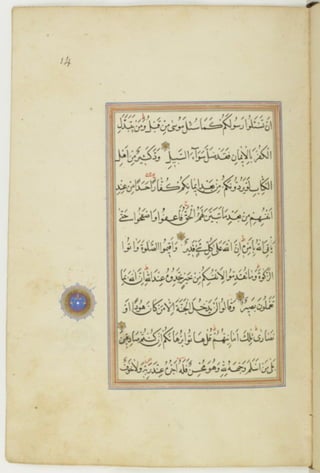 14
اَنْ تَسْئَلُوا رَسُولَكُمْ كَمَا سُئِلَ مُوسٰى مِنْ قَبْلُ وَمَنْ يَتَبَدَّلِ
الْكُفْرَ بِالْاِيمَانِ فَقَدْ ضَلَّ سَوَاءَ السَّبِيلِ وَدَّ كَثِيرٌ مِنْ اَهْلِ
الْكِتَابِ لَوْ يَرُدُّونَكُمْ مِنْ بَعْدِ اِيمَانِكُمْ كُفَّارًا حَسَدًا مِنْ عِنْدِ
اَنْفُسِهِمْ مِنْ بَعْدِ مَا تَبَيَّنَ لَهُمُ الْحَقُّ فَاعْفُوا وَاصْفَحُوا حَتّٰى
يَأْتِيَ اللّٰهُ بِاَمْرِهِ اِنَّ اللّٰهَ عَلٰى كُلِّ شَيْءٍ قَدِيرٌ وَاَقِيمُوا الصَّلٰوةَ وَاٰتُوا
الزَّكٰوةَ وَمَا تُقَدِّمُوا لِاَنْفُسِكُمْ مِنْ خَيْرٍ تَجِدُوهُ عِنْدَ اللّٰهِ اِنَّ اللّٰهَ بِمَا
تَعْمَلُونَ بَصِيرٌ وَقَالُوا لَنْ يَدْخُلَ الْجَنَّةَ اِلَّا مَنْ كَانَ هُودًا اَوْ
نَصَارٰى تِلْكَ اَمَانِيُّهُمْ قُلْ هَاتُوا بُرْهَانَكُمْ اِنْ كُنْتُمْ صَادِقِينَ
بَلٰى مَنْ اَسْلَمَ وَجْهَهُ لِلّٰهِ وَهُوَ مُحْسِنٌ فَلَهُ اَجْرُهُ عِنْدَ رَبِّهِ وَلَا خَوْفٌ